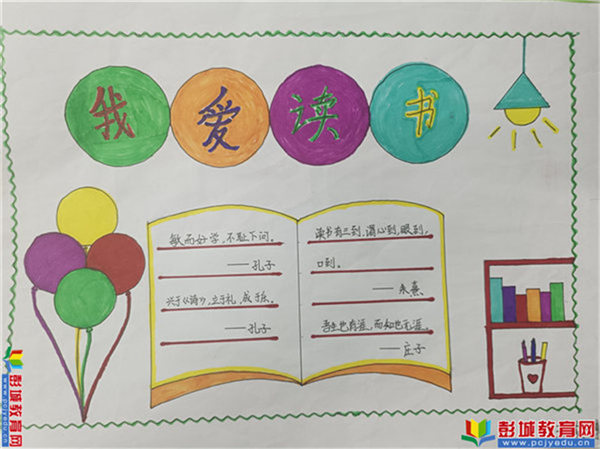 我爱读书
敏而好学，不耻下问。
——孔子
兴于《诗》，立于礼，成于乐。
——孔子
读书有三到，谓心到，眼到，
口到。
——朱熹
吾生也有涯，而知也无涯。
——庄子
彭城教育网
www.pcjyedu.cn
彭城教育网
www.pcjyedu.cn